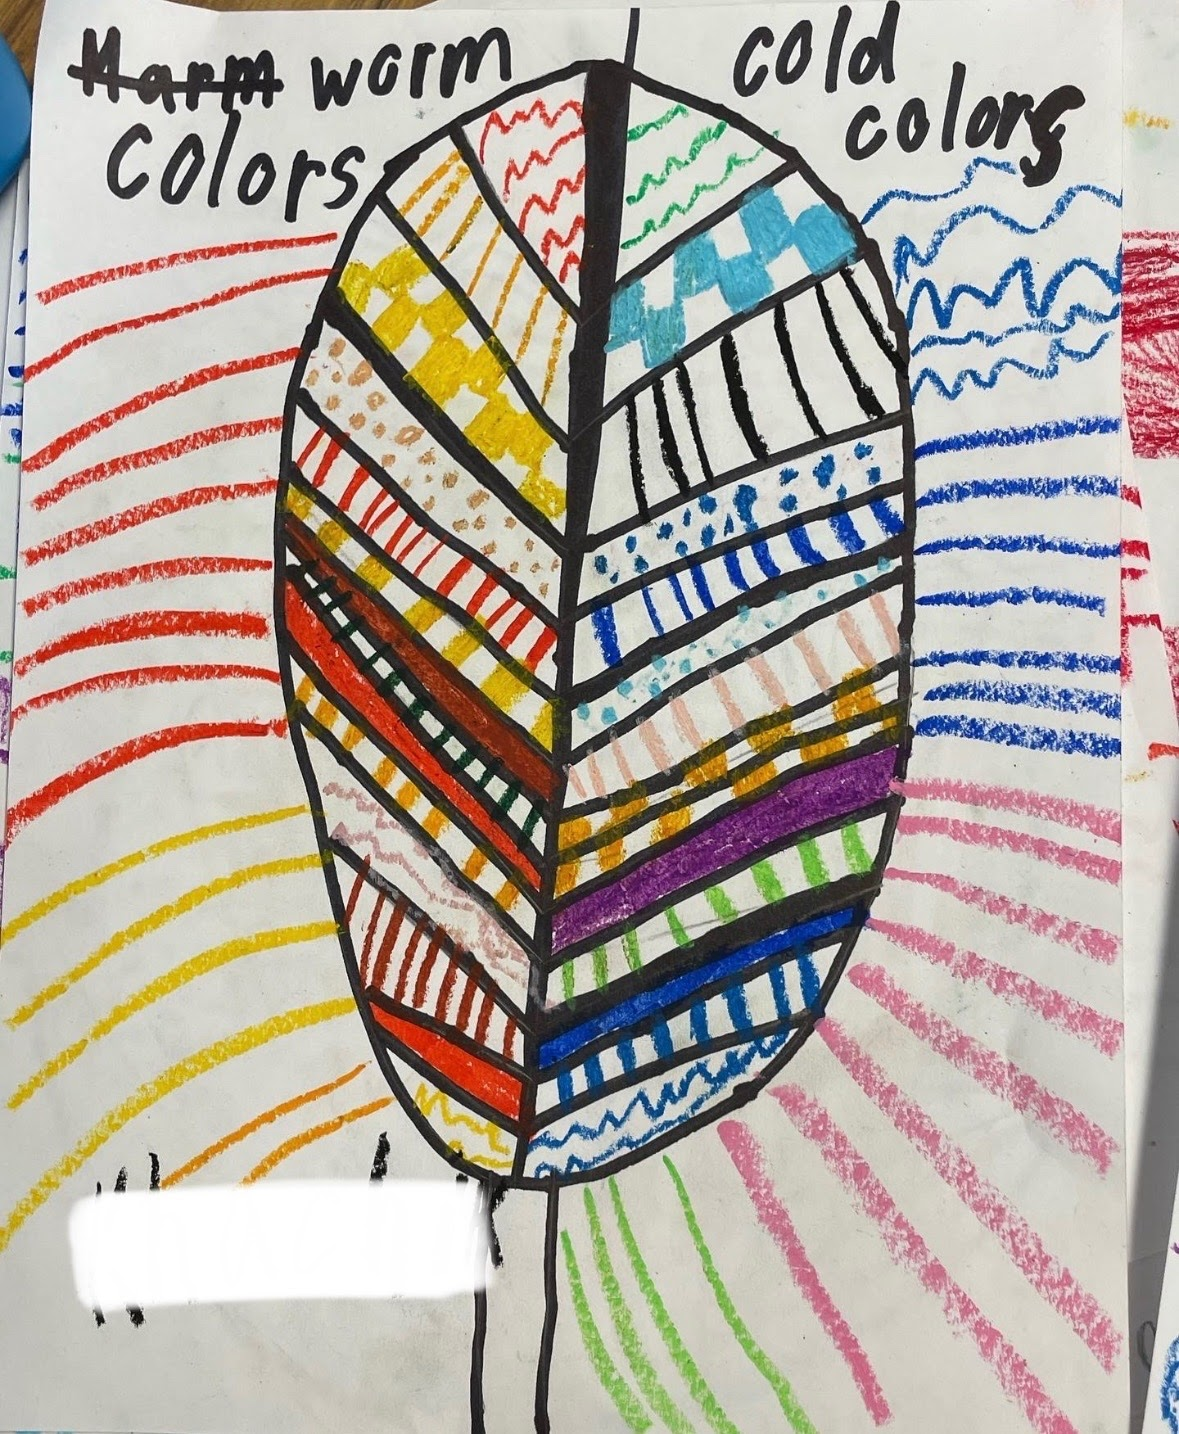 Warm worm
colors
cold
colors